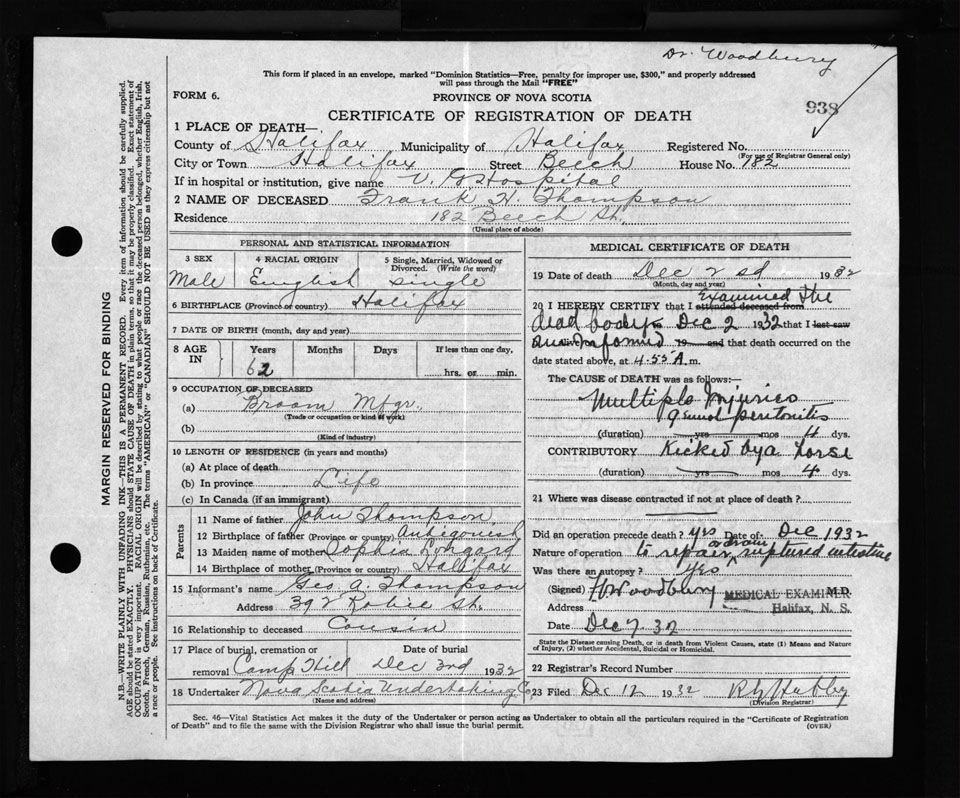 Dr. Woodbury
This form if placed in an envelope, marked "Dominion Statistics—Free, penalty for improper use, $300," and properly addressed
will pass through the Mail "FREE"
FORM 6.
PROVINCE OF NOVA SCOTIA
938
CERTIFICATE OF REGISTRATION OF DEATH
1 PLACE OF DEATH—
County of Halifax Municipality of Halifax Registered No.
(For use of Registrar General only)
City or Town Halifax Street Beech House No. 182
If in hospital or institution, give name V. G. Hospital
2 NAME OF DECEASED Frank H. Thompson
Residence 182 Beech St.
(Usual place of abode)
PERSONAL AND STATISTICAL INFORMATION
3 SEX 4 RACIAL ORIGIN 5 Single, Married, Widowed or
Divorced. (Write the word)
Male English Single
6 BIRTHPLACE (Province or country) Halifax
7 DATE OF BIRTH (month, day and year)
8 AGE IN Years Months Days If less than one day,
62 hrs. or min.
9 OCCUPATION OF DECEASED
(a) Broom Mfgr.
(Trade or occupation or kind of work)
(b)
(Kind of industry)
10 LENGTH OF RESIDENCE (in years and months)
(a) At place of death
(b) In province Life
(c) In Canada (if an immigrant)
Parents
11 Name of father John Thompson
12 Birthplace of father (Province or country) Antigonish
13 Maiden name of mother Sophia
14 Birthplace of mother (Province or country) Halifax
15 Informant's name Geo A. Thompson
Address 392 Robie St.
16 Relationship to deceased Cousin
17 Place of burial, cremation or Date of burial
removal Camp Hill Dec 3rd 1932
18 Undertaker Nova Scotia Undertaking Co
(Name and address)
MEDICAL CERTIFICATE OF DEATH
19 Date of death Dec 2nd 1932
(Month, day and year)
20 I HEREBY CERTIFY that I attended deceased from Examined the
dead body Dec 2 1932 that I last saw
am informed 19 and that death occurred on the
date stated above, at 4.55 A. m.
The CAUSE of DEATH was as follows:—
Multiple Injuries
peritonitis
(duration) yrs mos 4 dys.
CONTRIBUTORY Kicked by a horse
(duration) yrs mos 4 dys.
21 Where was disease contracted if not at place of death?
Did an operation precede death? yes Date of Dec 1932
Nature of operation to repair or drain ruptured intestine
Was there an autopsy? yes
(Signed) Woodbury M.D.
MEDICAL EXAMINER
Address Halifax, N. S.
Date Dec 7 32
State the Disease causing Death, or in death from Violent Causes, state (1) Means and Nature
of Injury, (2) whether Accidental, Suicidal or Homicidal.
22 Registrar's Record Number
23 Filed Dec 12 1932
(Division Registrar)
Sec. 46—Vital Statistics Act makes it the duty of the Undertaker or person acting as Undertaker to obtain all the particulars required in the "Certificate of Registration
of Death" and to file the same with the Division Registrar who shall issue the burial permit. (OVER)
MARGIN RESERVED FOR BINDING
N.B.—WRITE PLAINLY WITH UNFADING INK—THIS IS A PERMANENT RECORD. Every item of information should be carefully supplied.
AGE should be stated EXACTLY. PHYSICIANS should STATE CAUSE OF DEATH in plain terms, so that it may be properly classified. Exact statement of
OCCUPATION is very important. RACIAL ORIGIN will be described by stating to what people or race the deceased person belonged, whether English, Irish,
Scotch, French, German, Russian, Ruthenian, etc. The terms "AMERICAN" or "CANADIAN" SHOULD NOT BE USED as they express citizenship but not
a race or people. See instructions on back of Certificate.